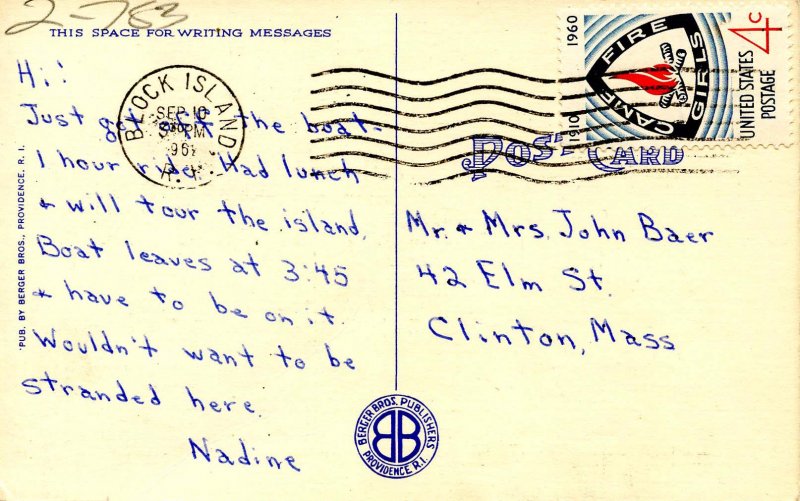 2-783
THIS SPACE FOR WRITING MESSAGES
Hi!
Just got off the boat -
1 hour ride. Had lunch
+ will tour the island.
Boat leaves at 3:45
+ have to be on it.
Wouldn't want to be
stranded here.
Nadine
PUB. BY BERGER BROS., PROVIDENCE, R. I.
BERGER BROS. PUBLISHERS
BB
PROVIDENCE R.I.
BLOCK ISLAND
SEP 10
PM
R. I.
1960
1910
CAMP FIRE GIRLS
4c
UNITED STATES
POSTAGE
POST CARD
Mr. + Mrs. John Baer
42 Elm St.
Clinton, Mass